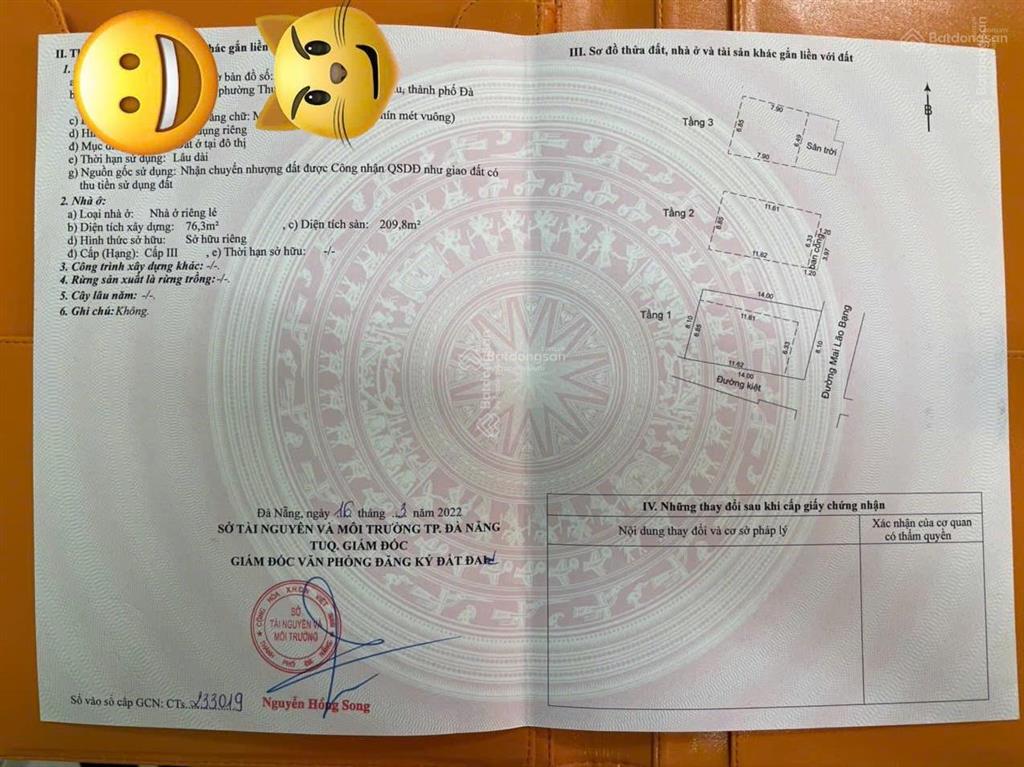 II. Th hác gắn liền
1.
ờ bản đồ số:
phường Thu u, thành phố Đà
ằng chữ: hín mét vuông)
d) Hìn dụng riêng
đ) Mục đ ất ở tại đô thị
e) Thời hạn sử dụng: Lâu dài
g) Nguồn gốc sử dụng: Nhận chuyển nhượng đất được Công nhận QSDĐ như giao đất có
thu tiền sử dụng đất
2. Nhà ở:
a) Loại nhà ở: Nhà ở riêng lẻ
b) Diện tích xây dựng: 76,3m² , c) Diện tích sàn: 209,8m²
d) Hình thức sở hữu: Sở hữu riêng
đ) Cấp (Hạng): Cấp III , e) Thời hạn sở hữu: -/-
3. Công trình xây dựng khác: -/-.
4. Rừng sản xuất là rừng trồng: -/-.
5. Cây lâu năm: -/-.
6. Ghi chú: Không.
Đà Nẵng, ngày 16 tháng 3 năm 2022
SỞ TÀI NGUYÊN VÀ MÔI TRƯỜNG TP. ĐÀ NẴNG
TUQ. GIÁM ĐỐC
GIÁM ĐỐC VĂN PHÒNG ĐĂNG KÝ ĐẤT ĐAI
CỘNG HÒA X.H.C.N VIỆT NAM
SỞ
TÀI NGUYÊN VÀ
MÔI TRƯỜNG
THÀNH PHỐ ĐÀ NẴNG
Nguyễn Hồng Song
Số vào sổ cấp GCN: CTs. 233019
III. Sơ đồ thửa đất, nhà ở và tài sản khác gắn liền với đất
B
Tầng 3
7.90
6.85
6.49
7.90
Sân trời
Tầng 2
11.61
6.85
6.33
11.62
1.20
ban công
5.97
1.20
Tầng 1
14.00
11.61
8.10
6.85
6.33
8.10
11.62
14.00
Đường kiệt
Đường Mai Lão Bạng
IV. Những thay đổi sau khi cấp giấy chứng nhận
Nội dung thay đổi và cơ sở pháp lý
Xác nhận của cơ quan
có thẩm quyền
Batdongsan
Batdongsan
Batdongsan